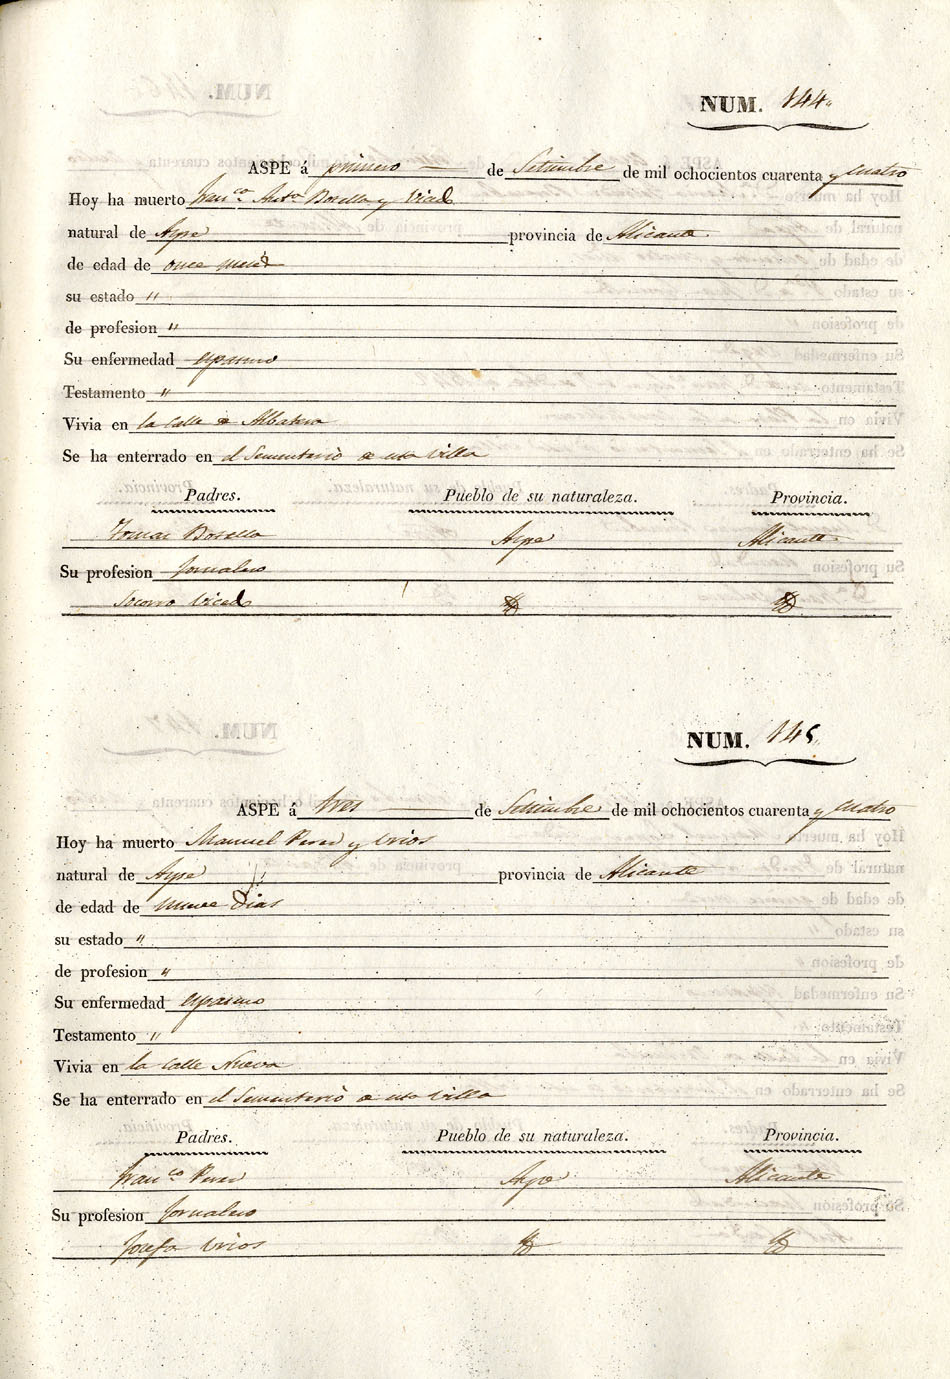 NUM. 144.
ASPE á primero de Setiembre de mil ochocientos cuarenta y cuatro
Hoy ha muerto Franco Anto Botella y Vicedo
natural de Aspe provincia de Alicante
de edad de once meses
su estado "
de profesion "
Su enfermedad espasmo
Testamento "
Vivia en la calle de Albatera
Se ha enterrado en el Sementerio de esta villa
Padres. Pueblo de su naturaleza. Provincia.
Tomas Botella Aspe Alicante
Su profesion Jornalero
Socorro Vicedo Yd Yd
NUM. 145.
ASPE á tres de Setiembre de mil ochocientos cuarenta y cuatro
Hoy ha muerto Manuel Perez y Urios
natural de Aspe provincia de Alicante
de edad de nueve dias
su estado "
de profesion "
Su enfermedad espasmo
Testamento "
Vivia en la calle Nueva
Se ha enterrado en el Sementerio de esta villa
Padres. Pueblo de su naturaleza. Provincia.
Franco Perez Aspe Alicante
Su profesion Jornalero
Josefa Urios Yd Yd